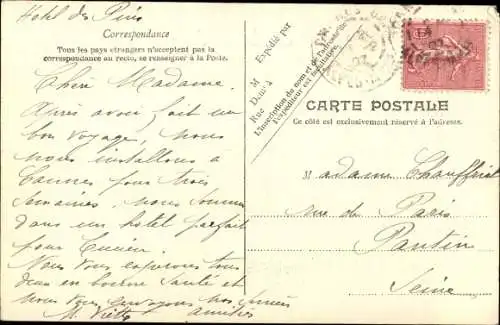 Hôtel des Pins
Correspondance
Tous les pays étrangers n'acceptent pas la
correspondance au recto, se renseigner à la Poste.
Chère Madame.
Après avoir fait un
bon voyage, nous
nous installons à
Cannes pour trois
semaines, nous sommes
dans un hôtel parfait
pour
Nous vous espérons tous
deux en bonne santé et
nous vous envoyons nos
amitiés
M
Expédié par
M
Rue
L'inscription du nom et de l'adresse de
l'expéditeur est facultative.
CARTE POSTALE
Ce côté est exclusivement réservé à l'adresse.
Madame Chauffriat
rue de Paris
Pantin
Seine